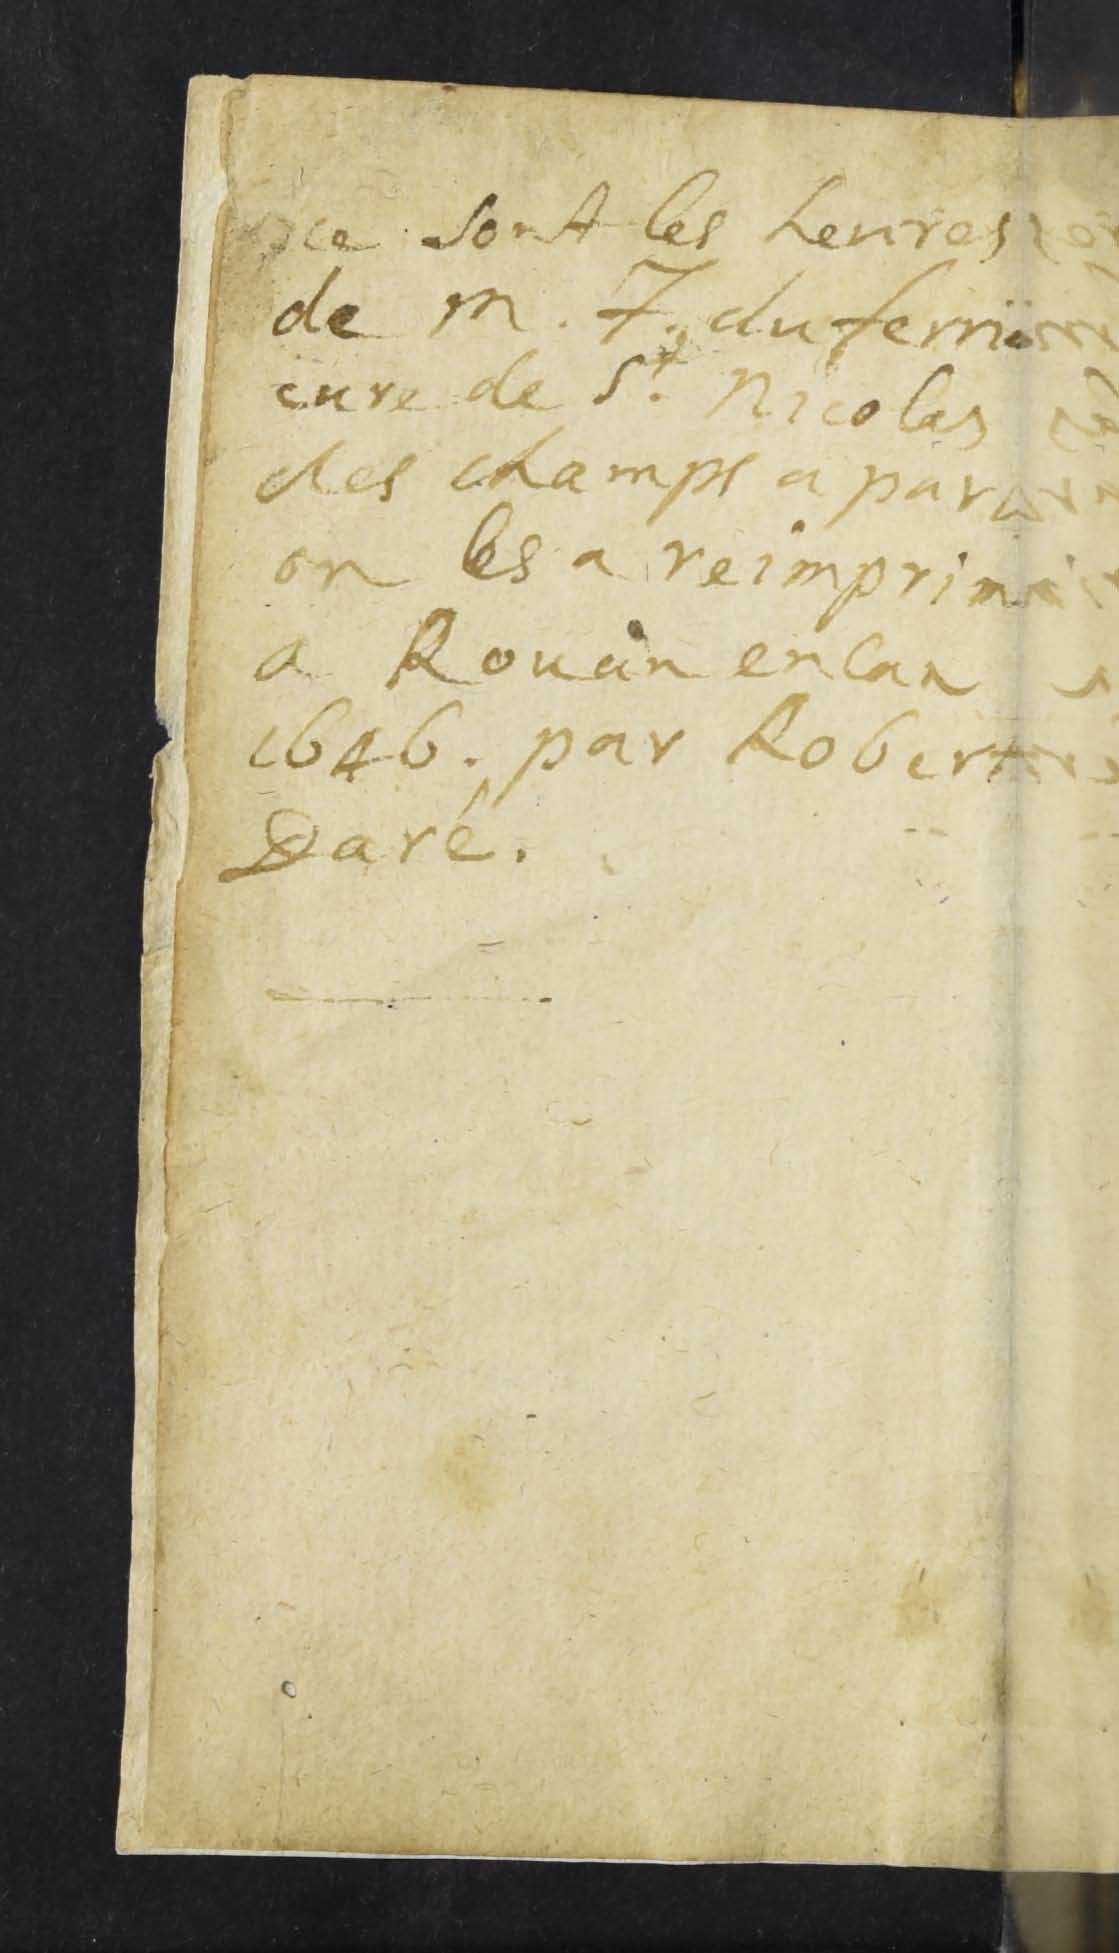 ce sont les heures
de m. J. du ferri
cure de St. Nicolas
des champs a par
on les a reimprimé
a Rouan en lan
1646. par Robert
Daré.